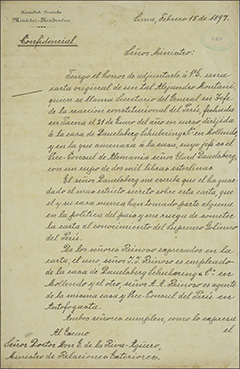 Kaiserlich Deutsche
Minister-Residentur
Lima, Febrero 15 de 1897.
Confidencial
Señor Ministro:
Tengo el honor de adjuntarle á V.E. una
carta original de un tal Alejandro Montani,
quien se llama Secretario del General en Jefe
de la reaccion constitucional del Perú, fechada
en Tacna el 31 de Enero del año en curso dirijida
á la casa de Dauelsberg Schubering & Cª en Mollendo
y en la que amenaza á la casa, cuyo jefe es el
Vice-Consul de Alemania señor Eduard Dauelsberg,
con un cupo de dos mil libras esterlinas.
El señor Dauelsberg me escribe que él ha guardado
el mas estricto secreto sobre esta carta, que
él y su casa nunca han tomado parte alguna
en la politica del pais y me ruega de someter
la carta al conocimiento del Supremo Gobierno
del Perú.
De los señores Reinoso expresados en la
carta, el uno señor J. J. Reinoso es empleado
de la casa de Dauelsberg Schubering & Cª en
Mollendo y el otro, señor A. A. Reinoso es agente
de la misma casa y Vice-Consul del Perú en
Antofagasta.
Ambos señores cumplen, como lo expresa
el
Al Exmo
Señor Doctor Don E. de la Riva-Agüero,
Ministro de Relaciones Exteriores.